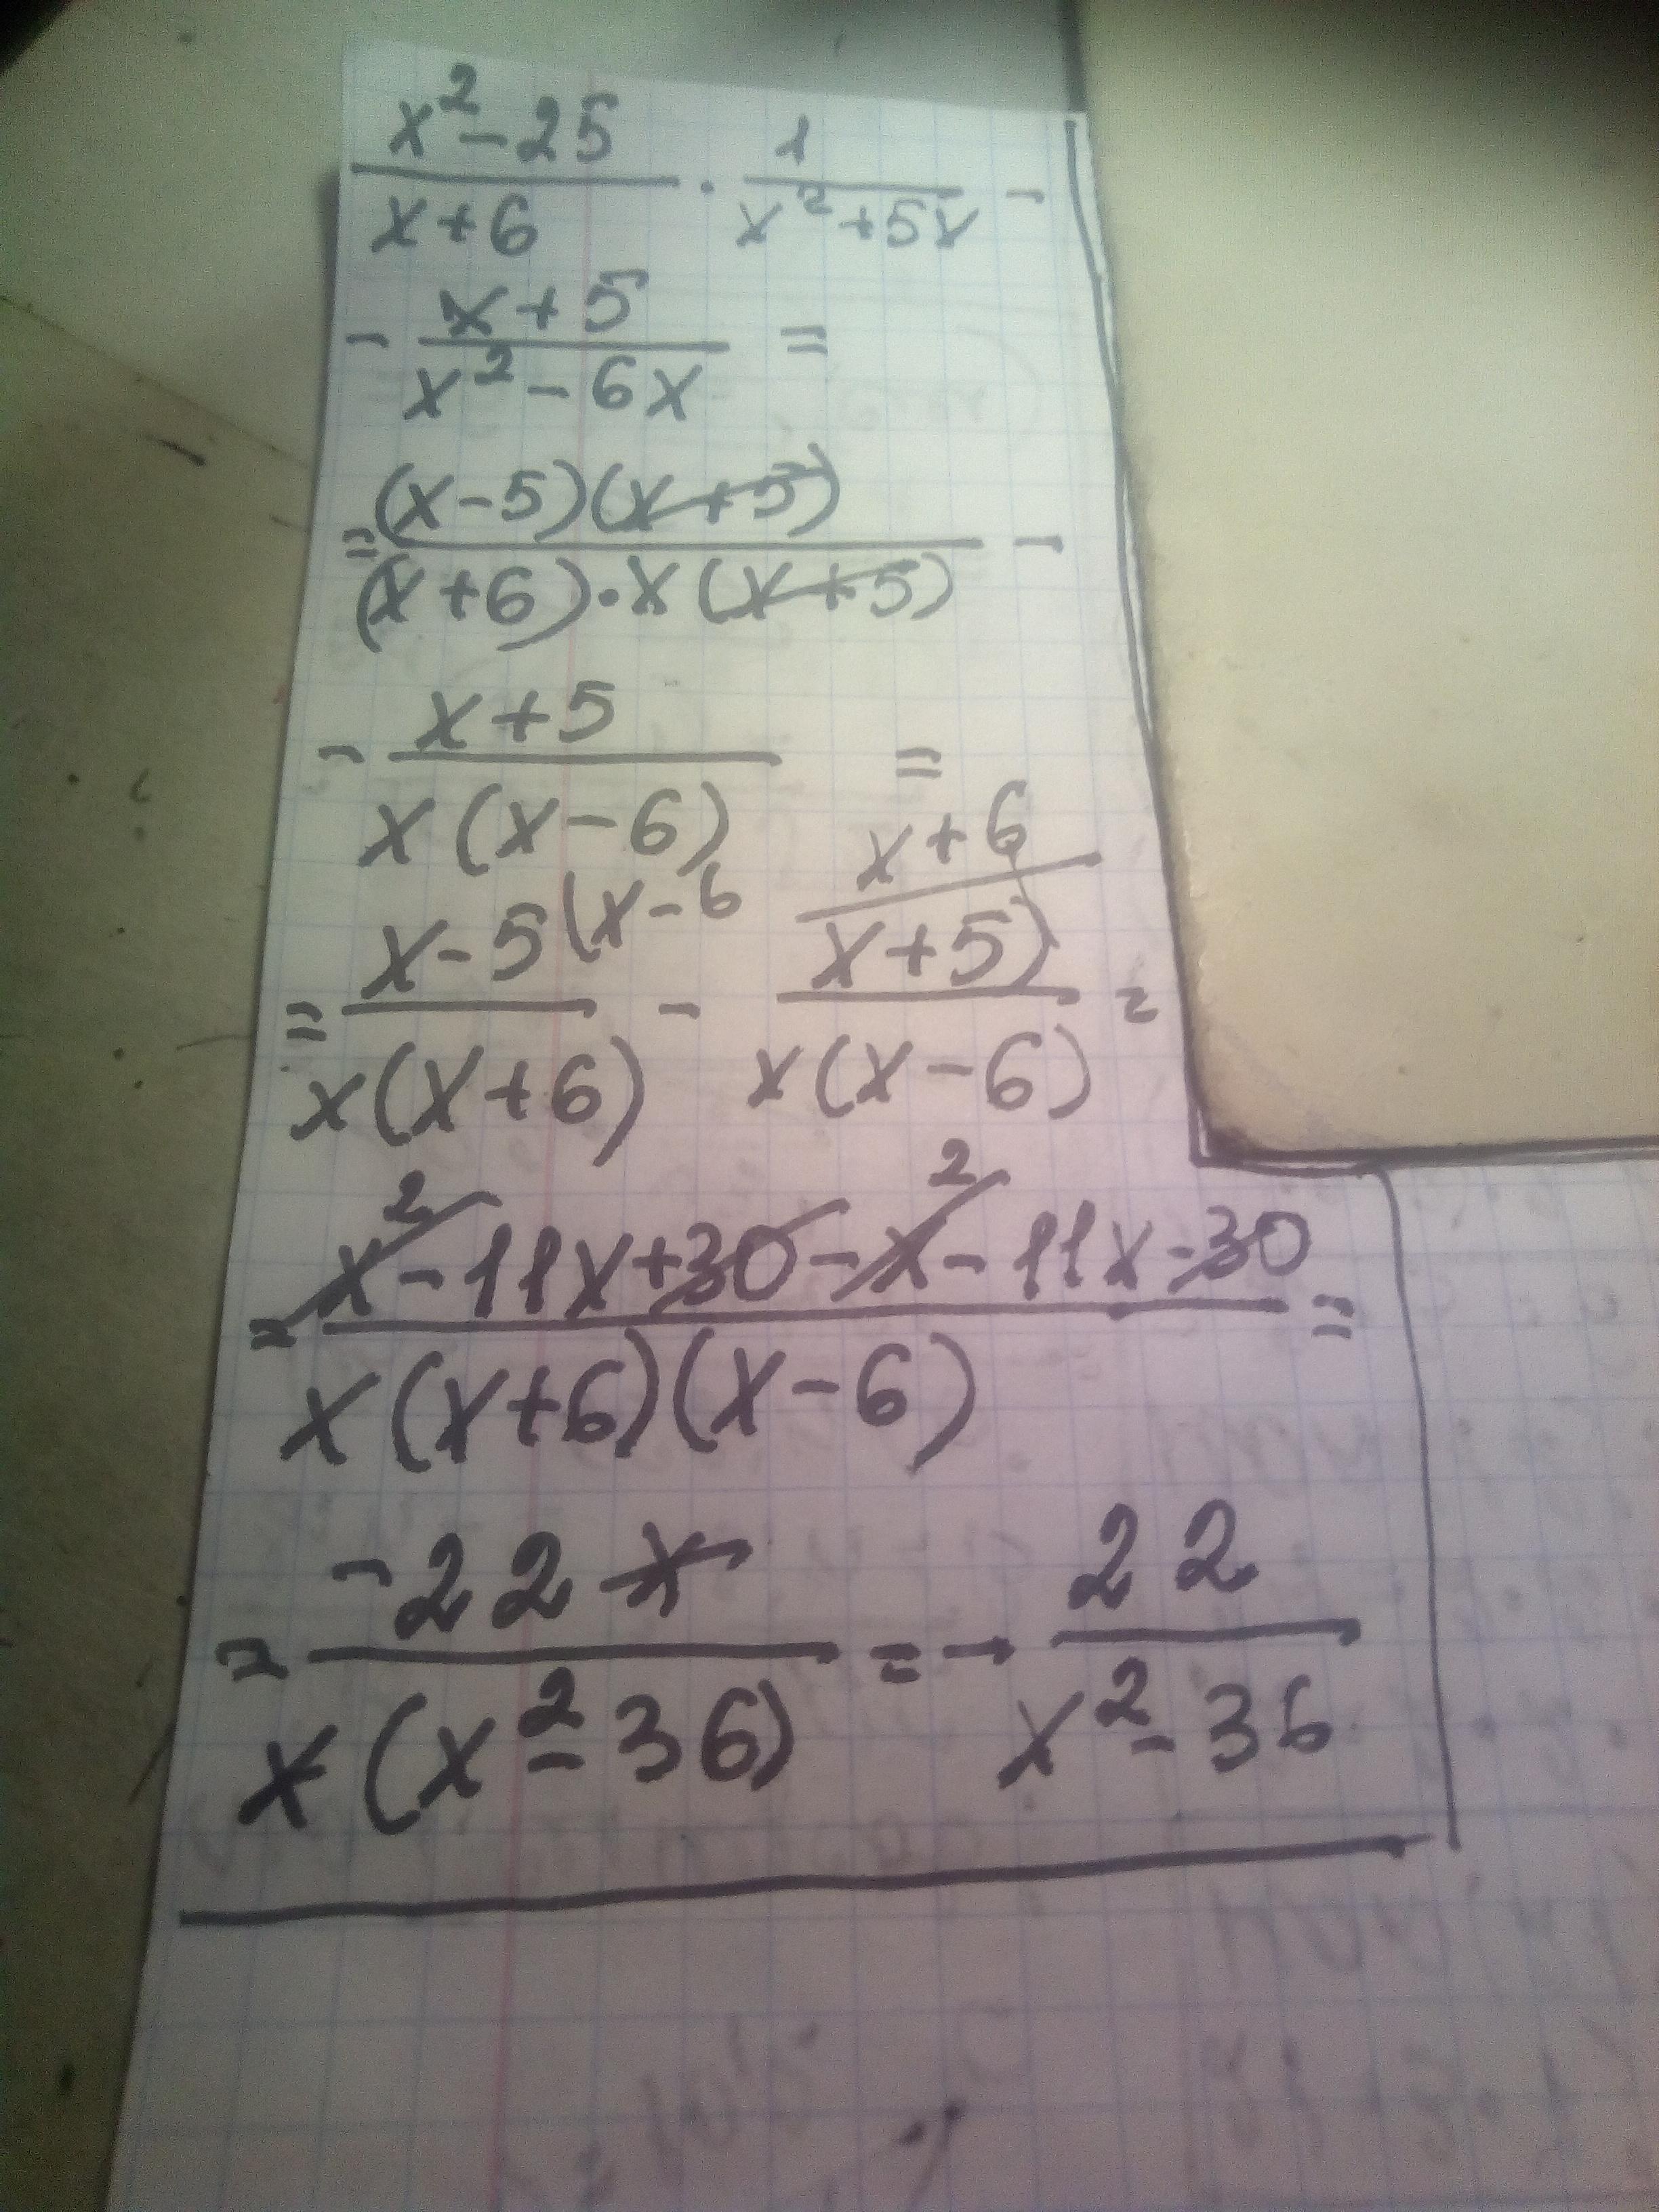 x² - 25 / x + 6 · 1 / x² + 5x -
- x + 5 / x² - 6x =
= (x - 5)(x + 5) / (x + 6) · x (x + 5) -
- x + 5 / x (x - 6) =
= x - 5 (x - 6 / x (x + 6) - x + 6 / x + 5) / x (x - 6) =
= x² - 11x + 30 - x² - 11x - 30 / x (x + 6)(x - 6) =
= -22x / x (x² - 36) = - 22 / x² - 36